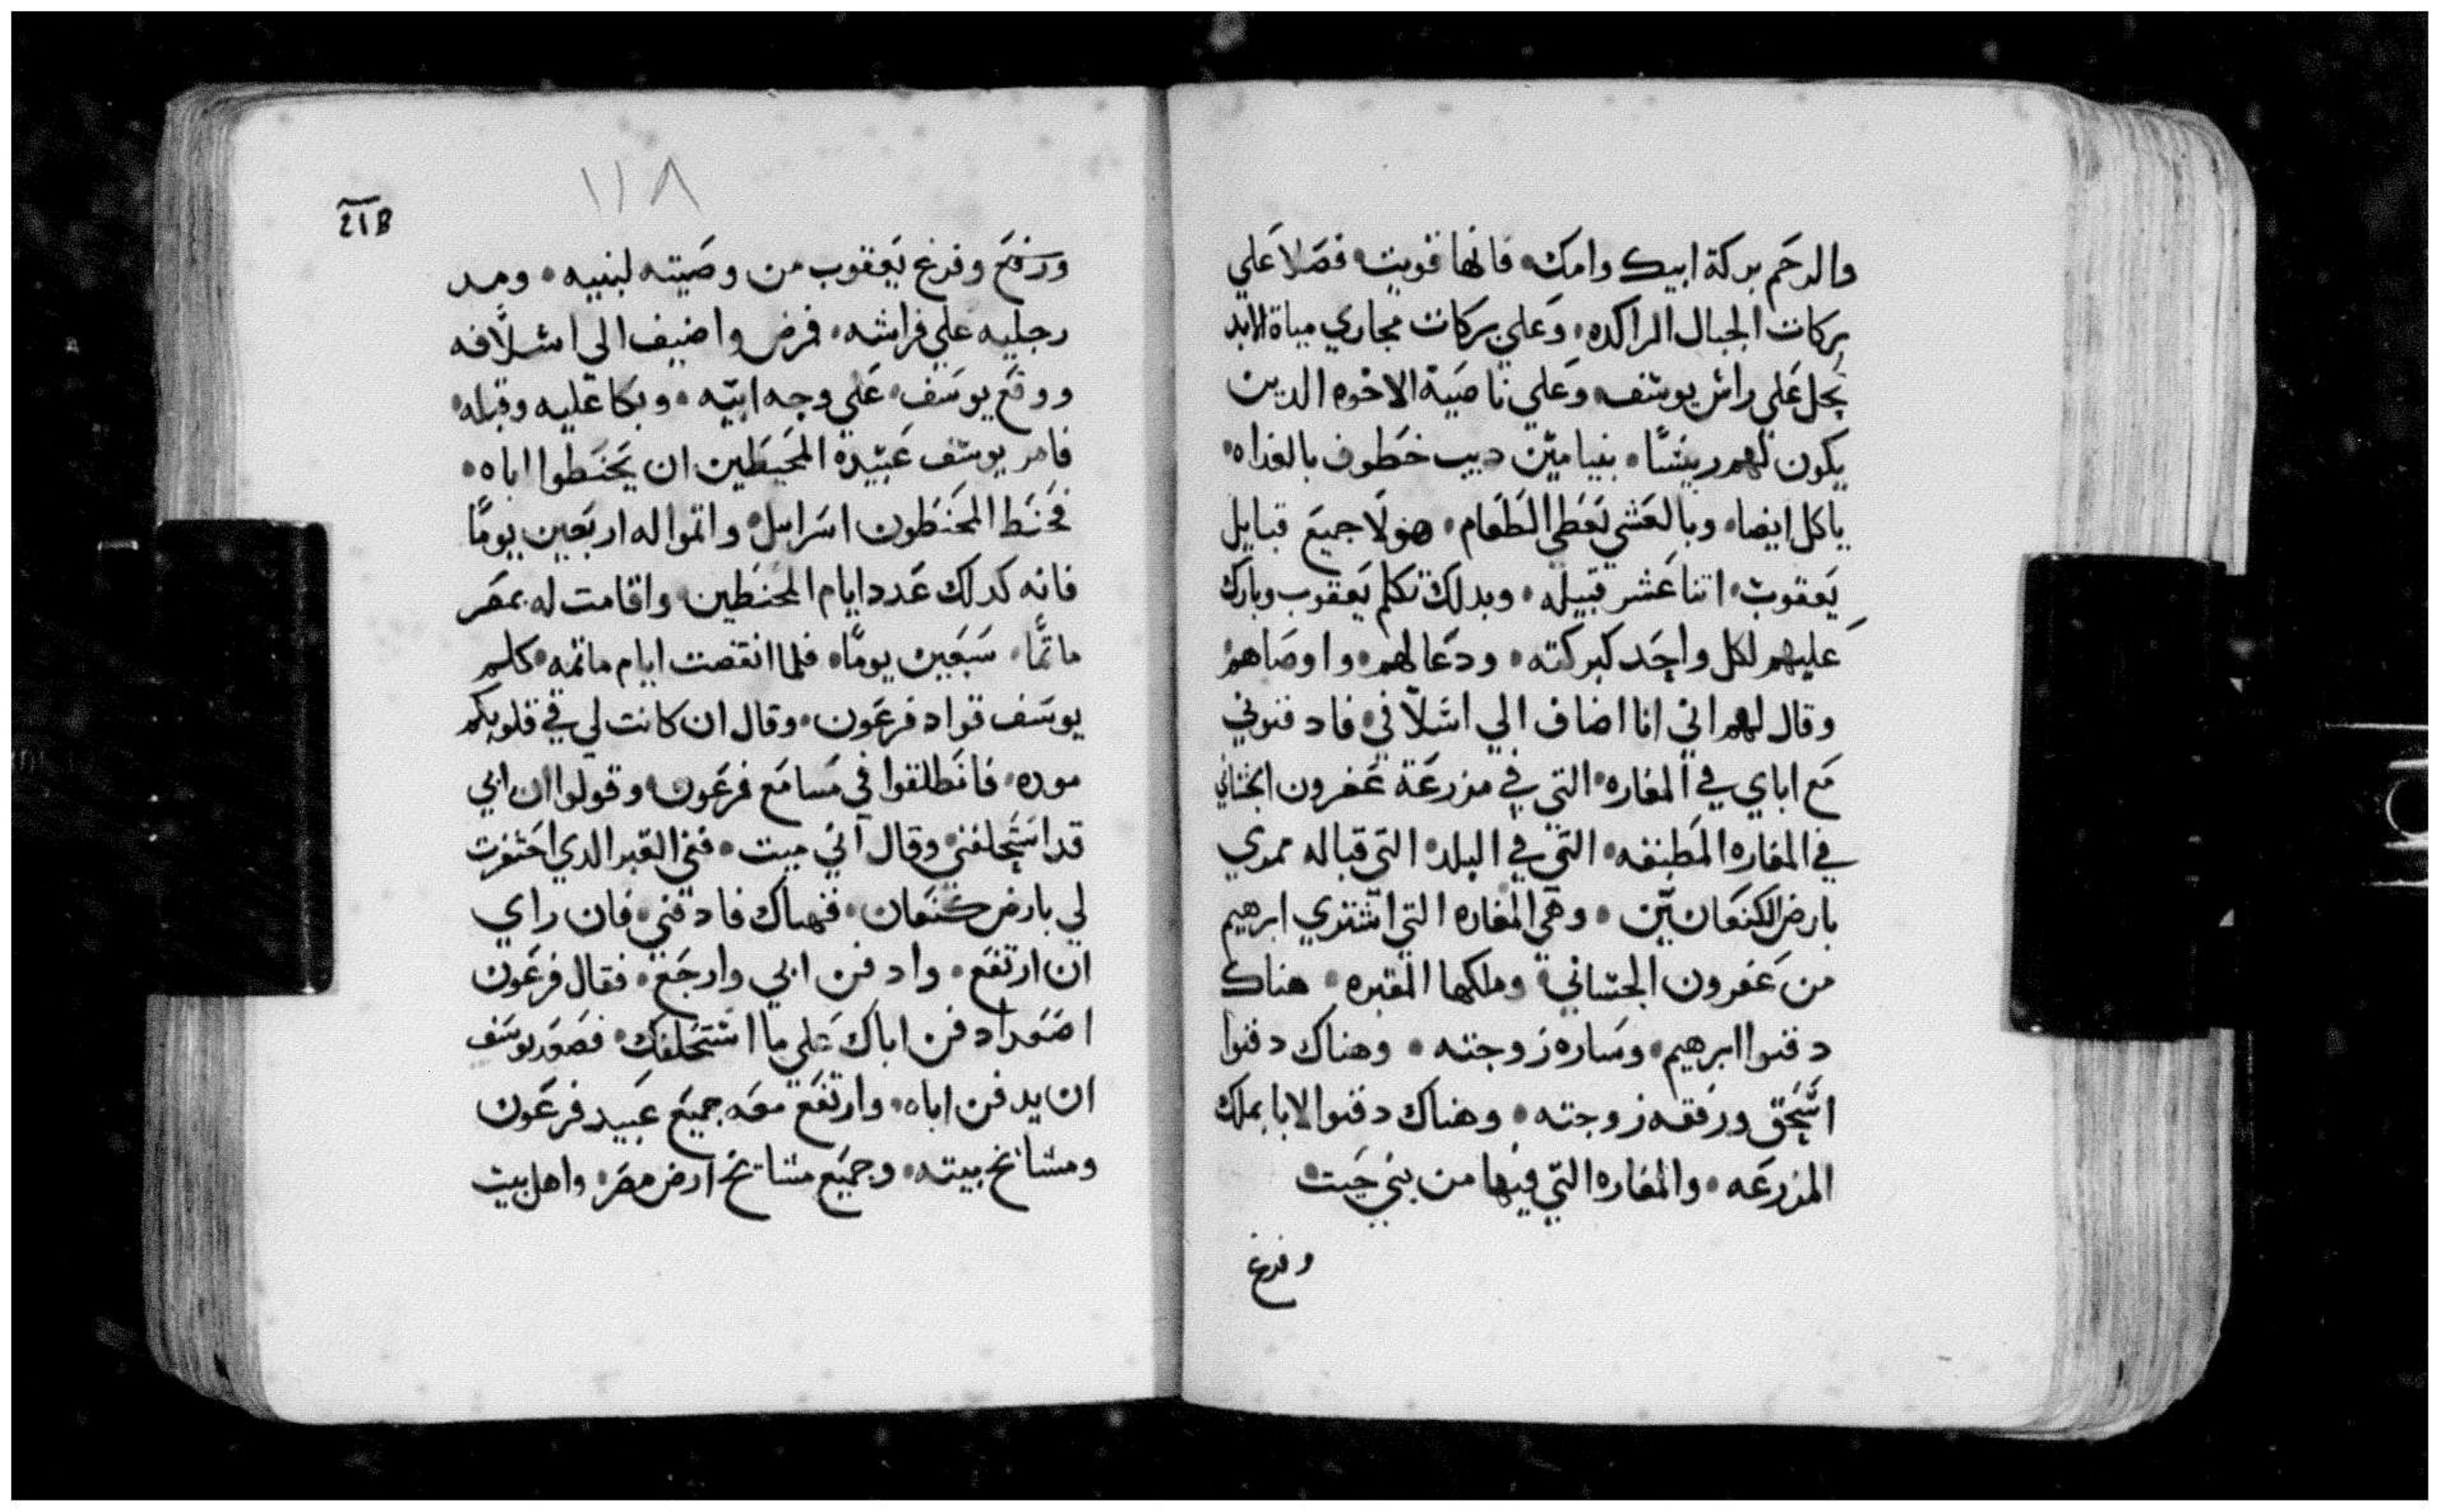 والرحم بركة ابيك وامك فانها قويت فضلا علي
بركات الجبال الراكده وعلي بركات مجاري مياة الابد
يحل علي راس يوسف وعلي ناصية الاخوه الدين
يكون لهم ريسًا بنيامين ديب خطوف بالغداه
ياكل ايضا وبالعشي يعطي الطعام هولا جميع قبايل
يعقوب اتنا عشر قبيله وبدلك تكلم يعقوب وبارك
عليهم لكل واحد كبركته ودعا لهم واوصاهم
وقال لهم اني انا اضاف الي اسلافي فادفنوني
مع اباي في المغاره التي في مزرعة عفرون الحتاني
في المغاره المطبنقه التي في البلد التي قباله ممري
بارض الكنعانيين وهي المغاره التي اشتري ابرهيم
من عفرون الحتاني وملكها المقبره هناك
دفنوا ابرهيم وساره زوجته وهناك دفنوا
اسحق ورفقه زوجته وهناك دفنوا لايا بملك
المزرعه والمغاره التي فيها من بني حيت
وفرغ
١١٨
ورفع وفرغ يعقوب من وصيته لبنيه ومد
رجليه علي فراشه فمرض واضيف الي اسلافه
ووقع يوسف علي وجه ابيه وبكا عليه وقبله
فامر يوسف عبيده المحنطين ان يحنطوا اباه
فحنط المحنطون اسرايل واتموا له اربعين يومًا
فانه كدلك عدد ايام المحنطين واقامت له بمصر
ماتمًا سبعين يومًا فلما انقضت ايام ماتمه كلم
يوسف قواد فرعون وقال ان كانت لي في قلوبكم
موده فانطلقوا في مسامع فرعون وقولوا ان ابي
قد استحلفني وقال اني ميت ففي القبر الدي احتفرت
لي بارض كنعان فهناك فادفني فان راي
ان ارتفع وادفن ابي وارجع فقال فرعون
اصعد ادفن اباك علي ما استحلفك فصعد يوسف
ان يدفن اباه وارتفع معه جميع عبيد فرعون
ومشايخ بيته وجميع مشايخ ارض مصر واهل بيت